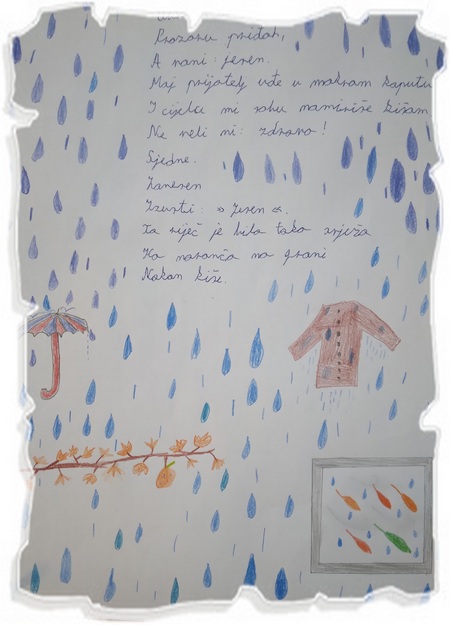 Prozoru priđoh,
A vani: jesen.
Moj prijatelj uđe u mokrom kaputu
I cijelu mi sobu namiriše kišom
Ne veli mi: zdravo!
Sjedne.
Zanesen
Izusti: » Jesen «.
Ta riječ je bila tako svježa
Ko naranča na grani
Nakon kiše.